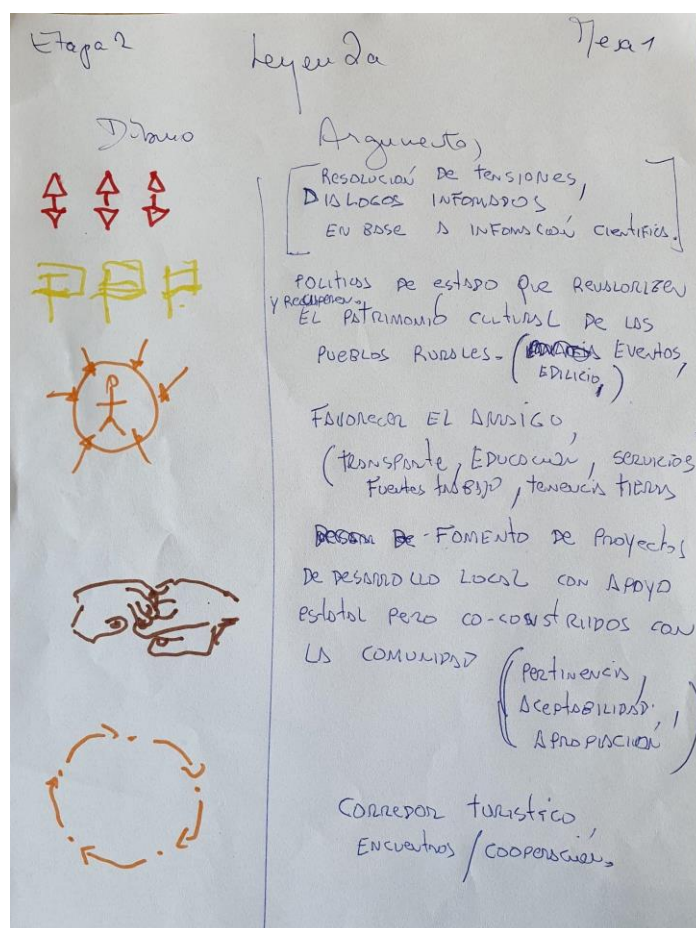 Etapa 2
Leyenda
Mesa 1
Dibujo
Argumento,
[RESOLUCIÓN DE TENSIONES,
DIALOGOS INFORMADOS
EN BASE A INFORMACIÓN CIENTIFICA.]
POLITICAS DE ESTADO QUE REVALORIZEN
Y RECUPEREN
EL PATRIMONIO CULTURAL DE LOS
PUEBLOS RURALES. (EVENTOS,
EDILICIO,)
FAVORECER EL ARRAIGO,
(TRANSPORTE, EDUCACION, SERVICIOS
FUENTES TRABAJO, TENENCIA TIERRAS
- FOMENTO DE PROYECTOS
DE DESARROLLO LOCAL CON APOYO
ESTATAL PERO CO-CONSTRUIDOS CON
LA COMUNIDAD (PERTINENCIA,
ACEPTABILIDAD,
APROPIACIÓN)
CORREDOR TURISTICO,
ENCUENTROS / COOPERACIÓN.